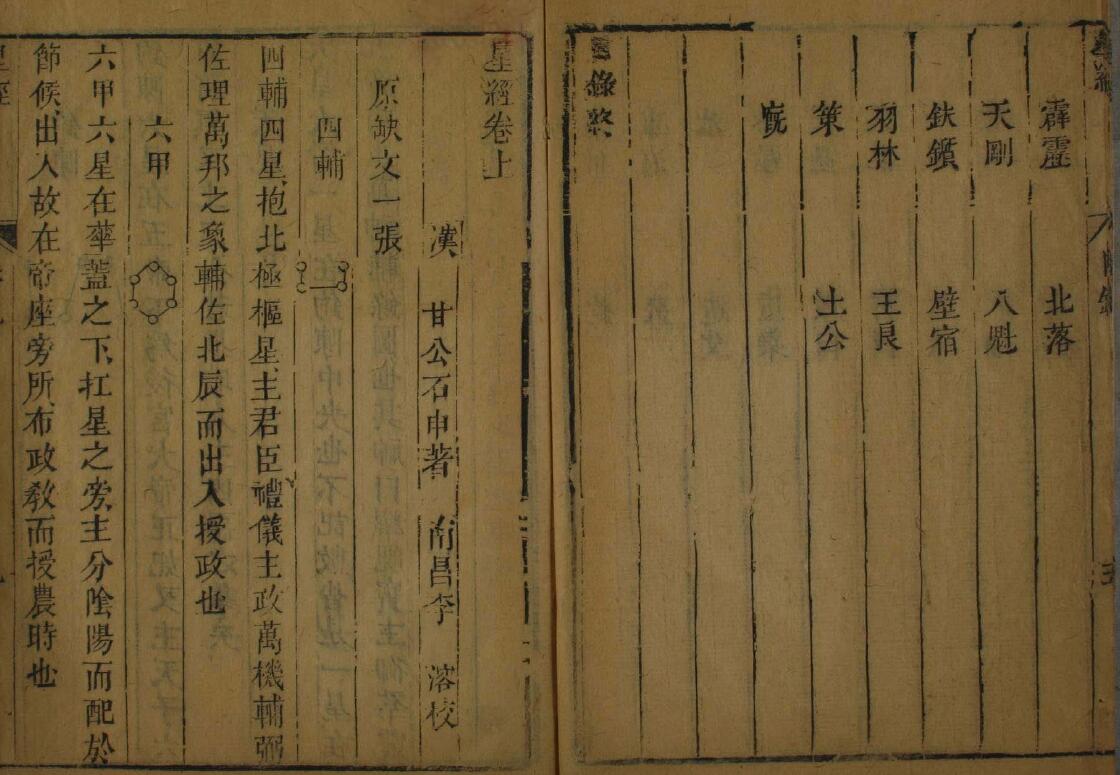 霹靂 北落
天剛 八魁
鈇鑕 壁宿
羽林 王良
策 土公
厩
錄終
星經卷上
漢 甘公石申著 南昌李 溶校
原缺文一張
四輔
四輔四星抱北極樞星主君臣禮儀主政萬機輔弼
佐理萬邦之象輔佐北辰而出入授政也
六甲
六甲六星在華蓋之下扛星之旁主分陰陽而配於
節候出入故在帝座旁所布政教而授農時也